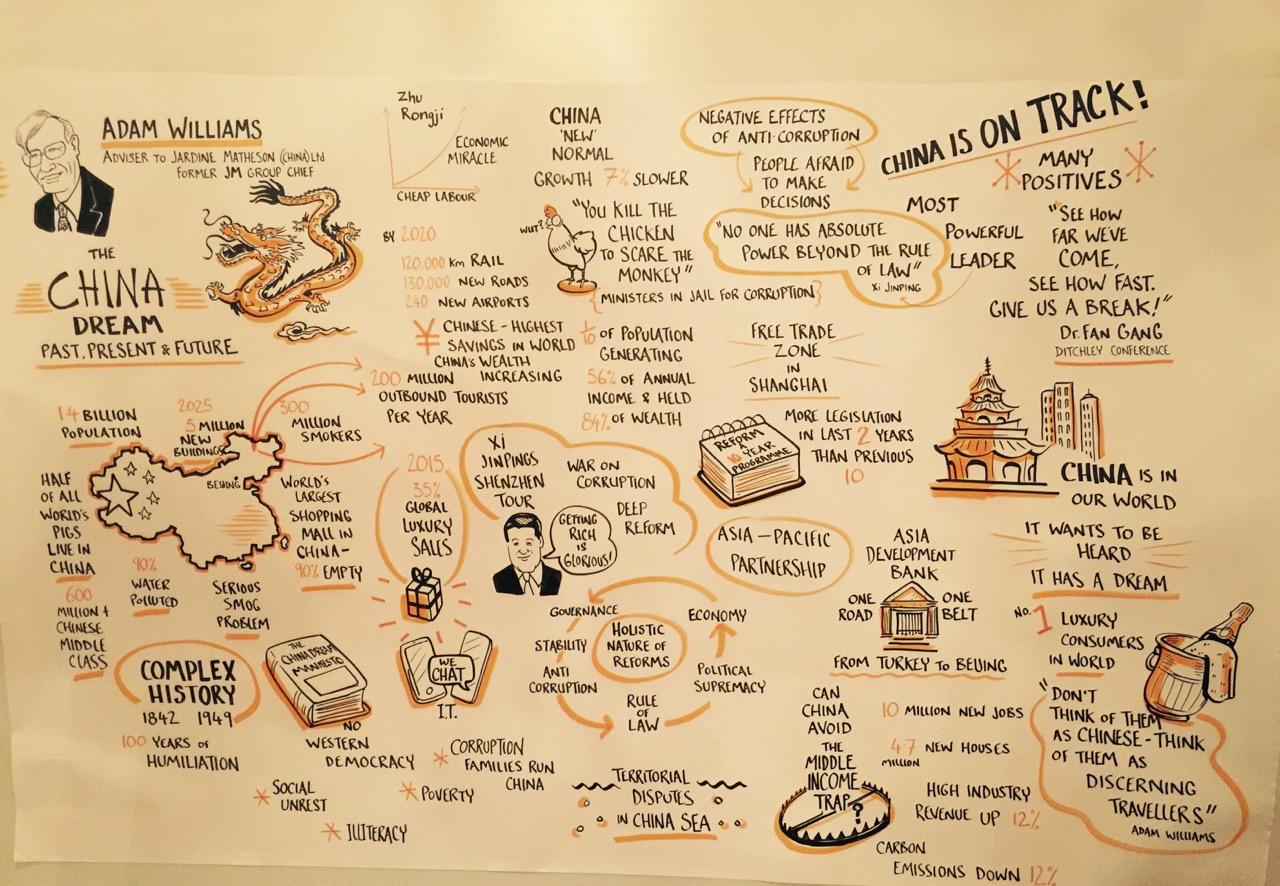 ADAM WILLIAMS
ADVISER TO JARDINE MATHESON (CHINA) Ltd
FORMER JM GROUP CHIEF
THE
CHINA
DREAM
PAST, PRESENT & FUTURE
Zhu
Rongji
ECONOMIC
MIRACLE
CHEAP LABOUR
BY 2020
120.000 Km RAIL
130.000 NEW ROADS
240 NEW AIRPORTS
¥ CHINESE - HIGHEST
SAVINGS IN WORLD
CHINA'S WEALTH
INCREASING
200 MILLION
OUTBOUND TOURISTS
PER YEAR
CHINA
'NEW'
NORMAL
GROWTH 7% SLOWER
WUT?
"YOU KILL THE
CHICKEN
TO SCARE THE
MONKEY"
{MINISTERS IN JAIL FOR CORRUPTION}
OF POPULATION
GENERATING
56% OF ANNUAL
INCOME & HELD
84% OF WEALTH
NEGATIVE EFFECTS
OF ANTI-CORRUPTION
PEOPLE AFRAID
TO MAKE
DECISIONS
"NO ONE HAS ABSOLUTE
POWER BEYOND THE RULE
OF LAW"
Xi JINPING
MOST
POWERFUL
LEADER
CHINA IS ON TRACK!
MANY
POSITIVES
"SEE HOW
FAR WE'VE
COME,
SEE HOW FAST.
GIVE US A BREAK!"
Dr. FAN GANG
DITCHLEY CONFERENCE
FREE TRADE
ZONE
IN
SHANGHAI
REFORM
10 YEAR
PROGRAMME
MORE LEGISLATION
IN LAST 2 YEARS
THAN PREVIOUS
10
1.4 BILLION
POPULATION
2025
5 MILLION
NEW
BUILDINGS
300
MILLION
SMOKERS
BEIJING
HALF
OF ALL
WORLD'S
PIGS
LIVE IN
CHINA
600
MILLION +
CHINESE
MIDDLE
CLASS
90%
WATER
POLLUTED
SERIOUS
SMOG
PROBLEM
WORLD'S
LARGEST
SHOPPING
MALL IN
CHINA -
90% EMPTY
2015
35%
GLOBAL
LUXURY
SALES
Xi
JINPINGS
SHENZHEN
TOUR
WAR ON
CORRUPTION
DEEP
REFORM
GETTING
RICH
IS
GLORIOUS!
ASIA - PACIFIC
PARTNERSHIP
ASIA
DEVELOPMENT
BANK
ONE
ROAD
ONE
BELT
FROM TURKEY TO BEIJING
CHINA IS IN
OUR WORLD
IT WANTS TO BE
HEARD
IT HAS A DREAM
NO. 1 LUXURY
CONSUMERS
IN WORLD
"DON'T
THINK OF THEM
AS CHINESE - THINK
OF THEM AS
DISCERNING
TRAVELLERS"
ADAM WILLIAMS
COMPLEX
HISTORY
1842 1949
100 YEARS OF
HUMILIATION
THE CHINA DREAM
MANIFESTO
NO
WESTERN
DEMOCRACY
WE
CHAT
I.T.
* CORRUPTION
FAMILIES RUN
CHINA
* SOCIAL
UNREST
* POVERTY
* ILLITERACY
GOVERNANCE
ECONOMY
STABILITY
HOLISTIC
NATURE OF
REFORMS
ANTI
CORRUPTION
POLITICAL
SUPREMACY
RULE
OF
LAW
TERRITORIAL
DISPUTES
IN CHINA SEA
CAN
CHINA
AVOID
THE
MIDDLE
INCOME
TRAP
?
10 MILLION NEW JOBS
4.7 NEW HOUSES
MILLION
HIGH INDUSTRY
REVENUE UP 12%
CARBON
EMISSIONS DOWN 12%